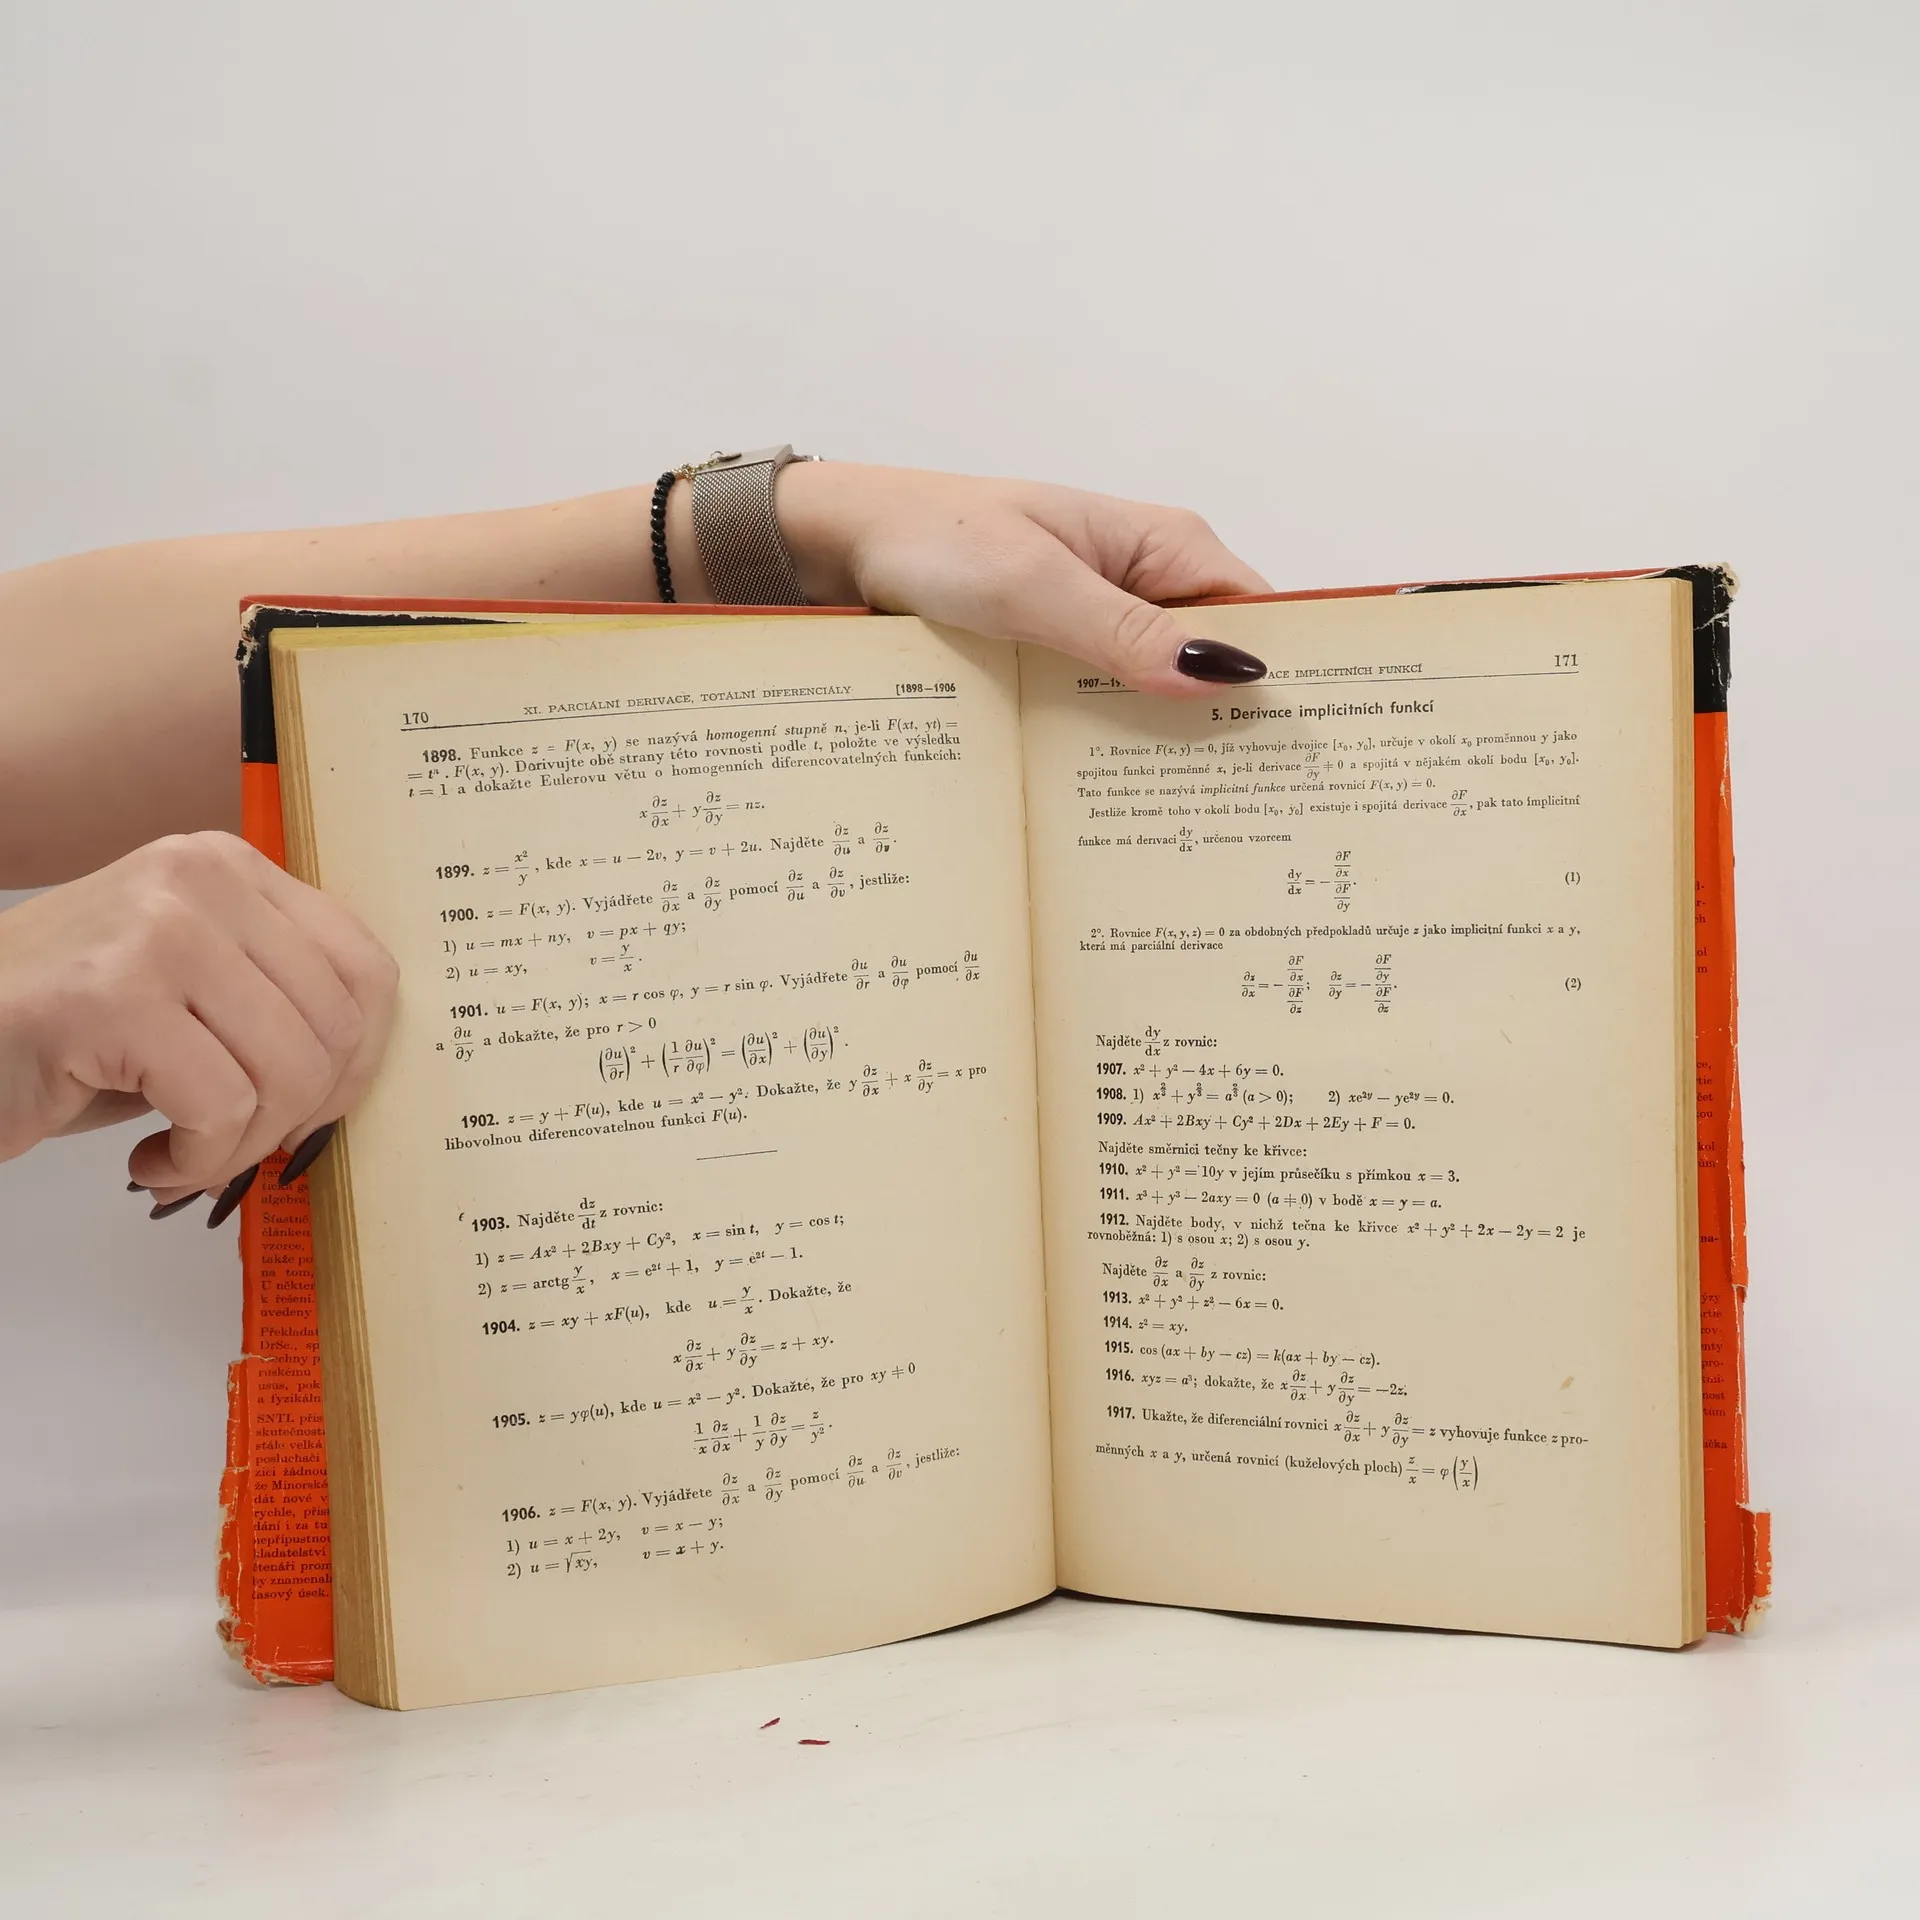 170 XI. PARCIÁLNÍ DERIVACE, TOTÁLNÍ DIFERENCIÁLY [1898–1906
1898. Funkce z = F(x, y) se nazývá homogenní stupně n, je-li F(xt, yt) =
= tⁿ . F(x, y). Derivujte obě strany této rovnosti podle t, položte ve výsledku
t = 1 a dokažte Eulerovu větu o homogenních diferencovatelných funkcích:
x ∂z/∂x + y ∂z/∂y = nz.
1899. z = x²/y, kde x = u − 2v, y = v + 2u. Najděte ∂z/∂u a ∂z/∂v.
1900. z = F(x, y). Vyjádřete ∂z/∂x a ∂z/∂y pomocí ∂z/∂u a ∂z/∂v, jestliže:
1) u = mx + ny, v = px + qy;
2) u = xy, v = y/x.
1901. u = F(x, y); x = r cos φ, y = r sin φ. Vyjádřete ∂u/∂r a ∂u/∂φ pomocí ∂u/∂x
a ∂u/∂y a dokažte, že pro r > 0
(∂u/∂r)² + (1/r ∂u/∂φ)² = (∂u/∂x)² + (∂u/∂y)².
1902. z = y + F(u), kde u = x² − y². Dokažte, že y ∂z/∂x + x ∂z/∂y = x pro
libovolnou diferencovatelnou funkci F(u).
1903. Najděte dz/dt z rovnic:
1) z = Ax² + 2Bxy + Cy², x = sin t, y = cos t;
2) z = arctg y/x, x = e²ᵗ + 1, y = e²ᵗ − 1.
1904. z = xy + xF(u), kde u = y/x. Dokažte, že
x ∂z/∂x + y ∂z/∂y = z + xy.
1905. z = yφ(u), kde u = x² − y². Dokažte, že pro xy ≠ 0
1/x ∂z/∂x + 1/y ∂z/∂y = z/y².
1906. z = F(x, y). Vyjádřete ∂z/∂x a ∂z/∂y pomocí ∂z/∂u a ∂z/∂v, jestliže:
1) u = x + 2y, v = x − y;
2) u = √xy, v = x + y.
IMPLICITNÍCH FUNKCÍ 171
5. Derivace implicitních funkcí
1°. Rovnice F(x, y) = 0, jíž vyhovuje dvojice [x₀, y₀], určuje v okolí x₀ proměnnou y jako
spojitou funkci proměnné x, je-li derivace ∂F/∂y ≠ 0 a spojitá v nějakém okolí bodu [x₀, y₀].
Tato funkce se nazývá implicitní funkce určená rovnicí F(x, y) = 0.
Jestliže kromě toho v okolí bodu [x₀, y₀] existuje i spojitá derivace ∂F/∂x, pak tato implicitní
funkce má derivaci dy/dx, určenou vzorcem
dy/dx = − (∂F/∂x)/(∂F/∂y). (1)
2°. Rovnice F(x, y, z) = 0 za obdobných předpokladů určuje z jako implicitní funkci x a y,
která má parciální derivace
∂z/∂x = − (∂F/∂x)/(∂F/∂z); ∂z/∂y = − (∂F/∂y)/(∂F/∂z). (2)
Najděte dy/dx z rovnic:
1907. x² + y² − 4x + 6y = 0.
1908. 1) x^(2/3) + y^(2/3) = a^(2/3) (a > 0); 2) xe²ʸ − ye²ʸ = 0.
1909. Ax² + 2Bxy + Cy² + 2Dx + 2Ey + F = 0.
Najděte směrnici tečny ke křivce:
1910. x² + y² = 10y v jejím průsečíku s přímkou x = 3.
1911. x³ + y³ − 2axy = 0 (a ≠ 0) v bodě x = y = a.
1912. Najděte body, v nichž tečna ke křivce x² + y² + 2x − 2y = 2 je
rovnoběžná: 1) s osou x; 2) s osou y.
Najděte ∂z/∂x a ∂z/∂y z rovnic:
1913. x² + y² + z² − 6x = 0.
1914. z² = xy.
1915. cos (ax + by − cz) = k(ax + by − cz).
1916. xyz = a³; dokažte, že x ∂z/∂x + y ∂z/∂y = −2z.
1917. Ukažte, že diferenciální rovnici x ∂z/∂x + y ∂z/∂y = z vyhovuje funkce z pro-
měnných x a y, určená rovnicí (kuželových ploch) z/x = φ(y/x)
algebra,
Šťastně
článken
vzorce,
takže po
na tom,
U někter
k řešení.
uvedeny
Překladat
DrSc., sp
ruskému
usus, pok
a fyzikáln
SNTL přís
skutečnost
stále velká
posluchači
zící žádnou
že Minorské
dát nové v
rychle, přis
dání i za tu
nepřípustnou
kladatelství
čtenáři prom
by znamenal
časový úsek.